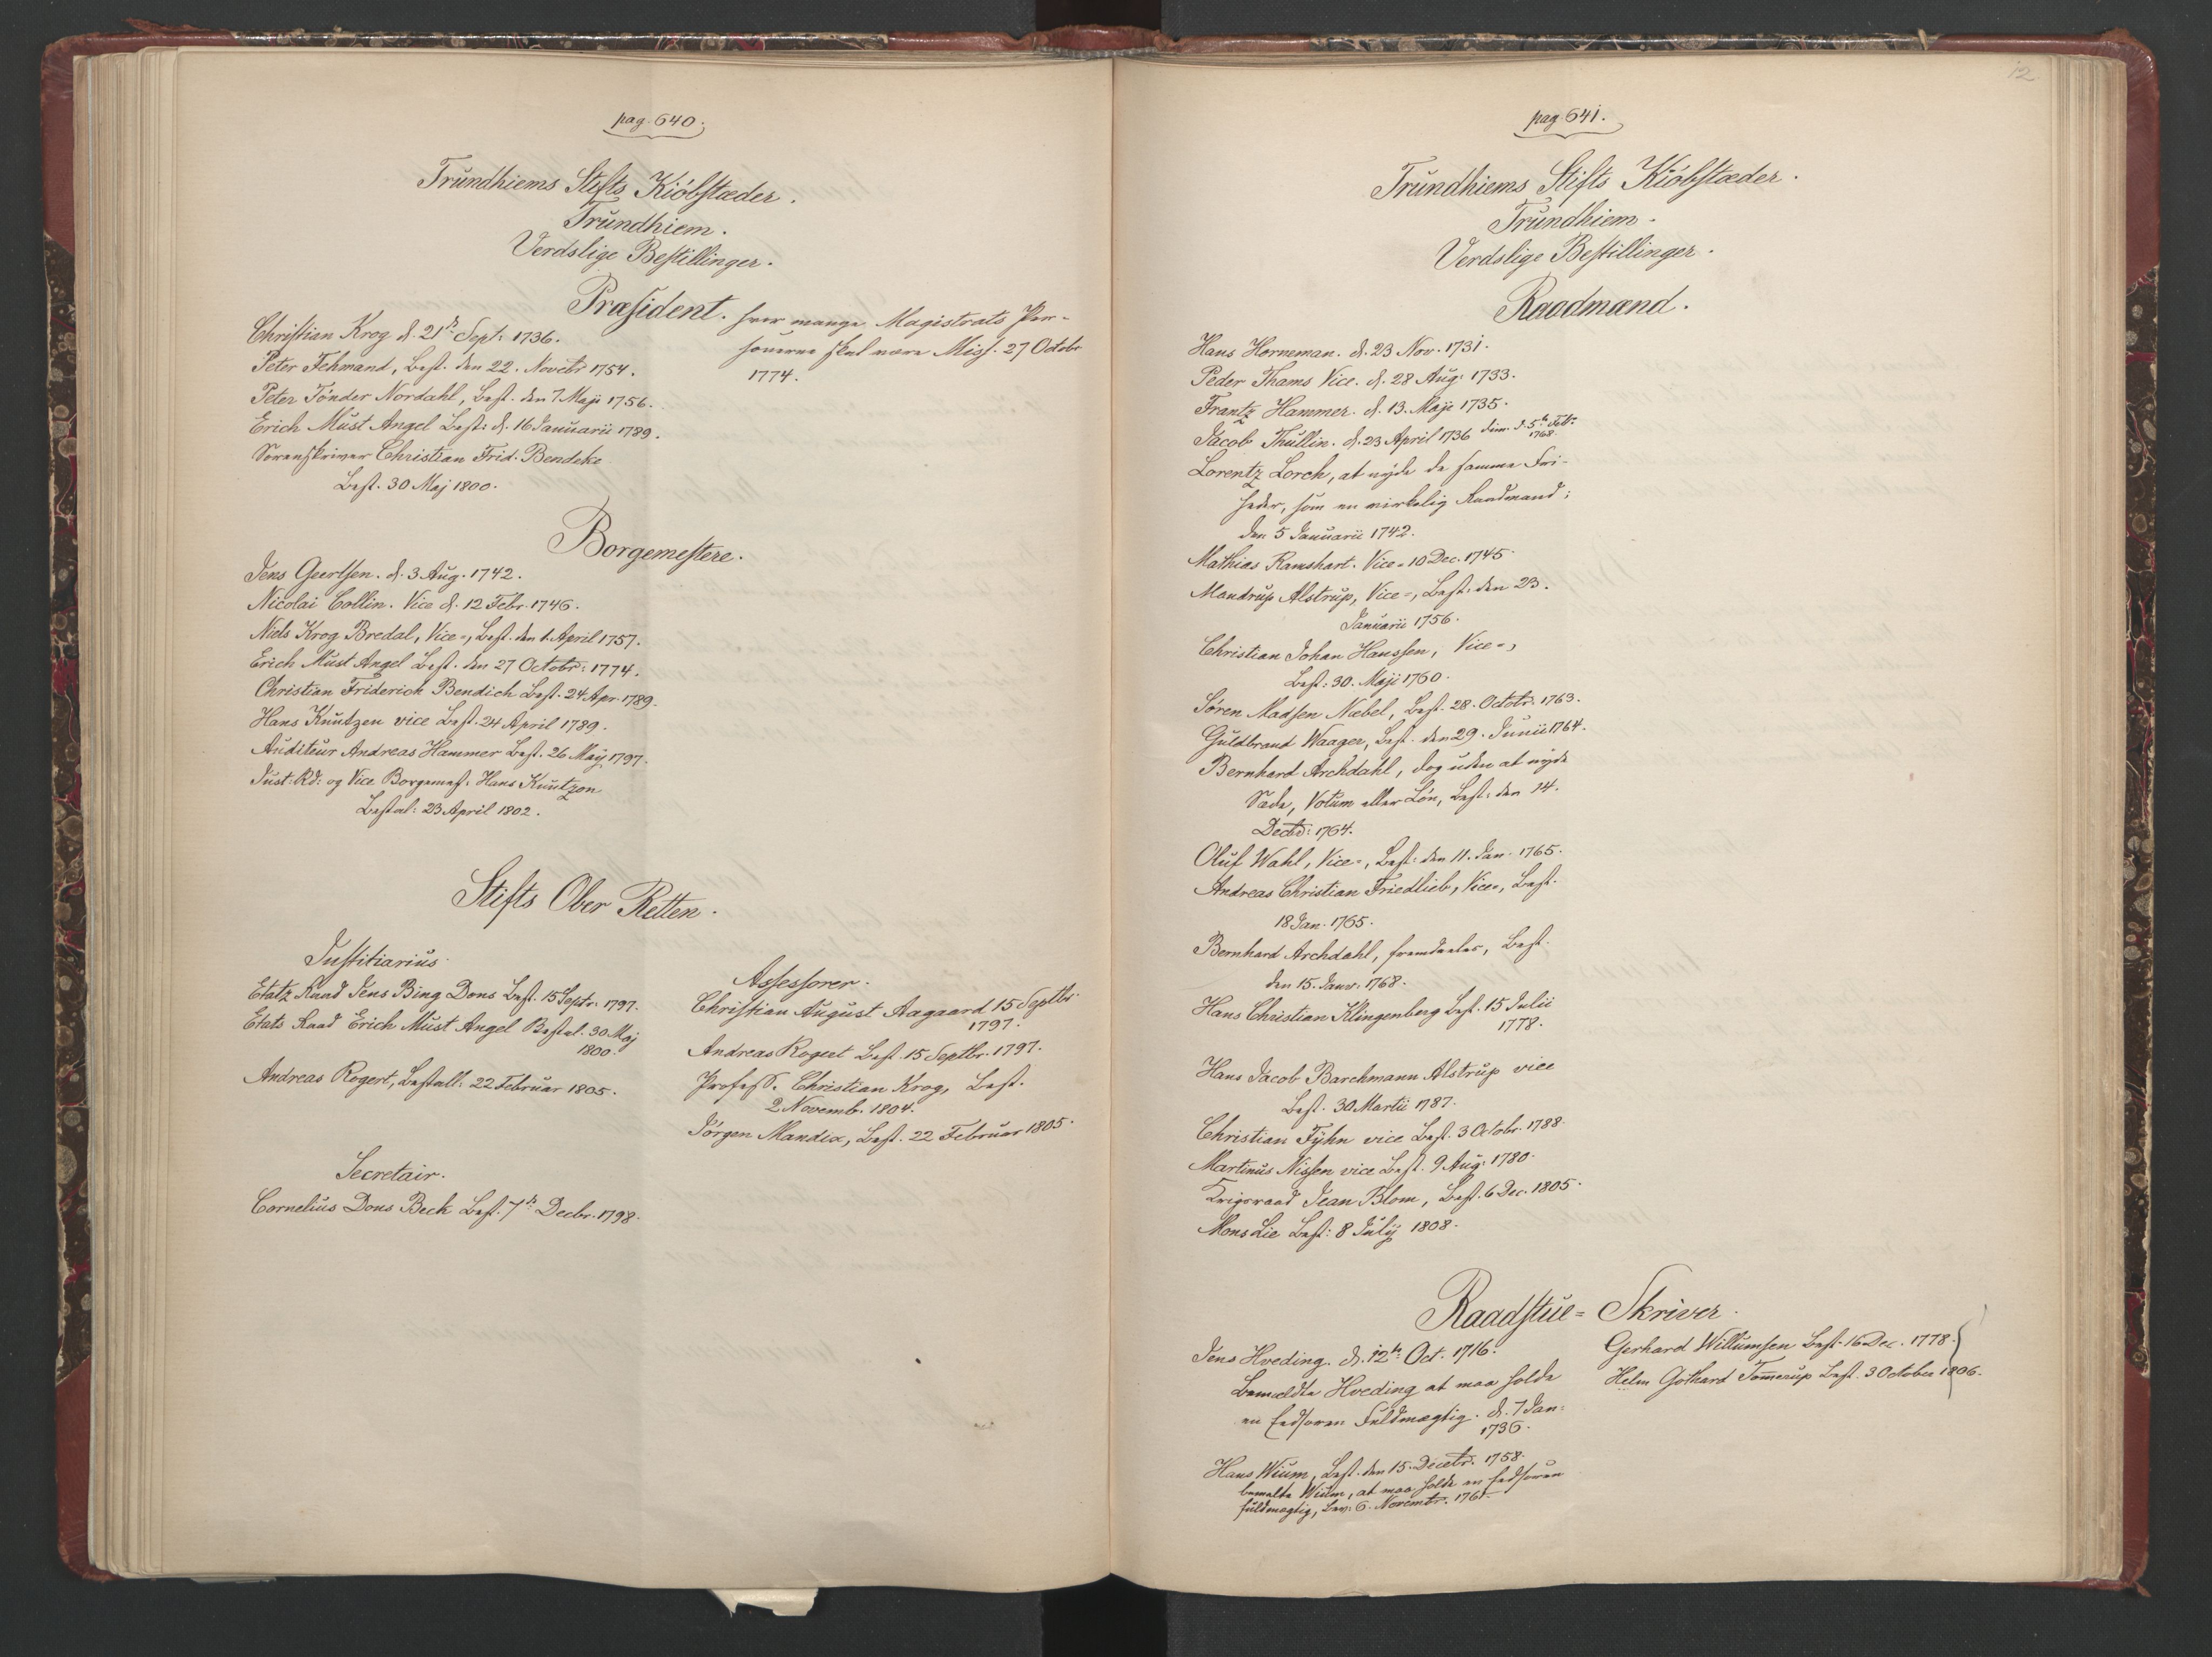 pag. 640.
Trundhiems Stifts Kiöbstæder.
Trundhiem.
Verdslige Bestillinger.
Præsident. hvor mange Magistrats Per-
sonerne skal være Miss. 27 Octobr
1774.
Christian Krog d. 21de Sept: 1736.
Peter Fehmand, Best. den 22. Novebr 1754.
Peter Tönder Nordahl, Best. den 7 Maji 1756.
Erich Must Angel Best: d. 16 Januarii 1789.
Sorenskriver Christian Frid. Bendeke
Best. 30 Maj 1800.
Borgemestere.
Jens Geertsen. d. 3 Aug. 1742.
Nicolai Collin. Vice d. 12 Febr. 1746.
Niels Krog Bredal, Vice=, Best. den 1. April 1757.
Erich Must Angel Best. den 27 Octobr: 1774.
Christian Friderich Bendich Best. 24 Apr. 1789.
Hans Knutzen vice Best. 24 April 1789.
Auditeur Andreas Hammer Best. 26 Maij 1797.
Just: Rd: og Vice Borgemest: Hans Knutzon
Bestal: 23 April 1802.
Stifts Ober Retten.
Justitiarius
Etatz Raad Jens Bing Dons Best. 15 Septr. 1797.
Etats Raad Erich Must Angel Bestal. 30 Maj
1800.
Andreas Rogert, Bestall. 22 Februar 1805.
Assessorer.
Christian August Aagaard 15 Septbr
1797.
Andreas Rogert Best. 15 Septbr. 1797.
Profess. Christian Krog, Best.
2 Novemb. 1804.
Jörgen Mandix, Best. 22 Februar 1805.
Secretair.
Cornelius Dons Bech Best. 7de Decbr. 1798.
12
pag 641.
Trundhiems Stifts Kiöbstæder.
Trundhiem.
Verdslige Bestillinger.
Raadmænd.
Hans Horneman. d. 23 Nov. 1731.
Peder Thams Vice. d. 28 Aug: 1733.
Frantz Hammer. d. 13. Maji 1735.
Jacob Thullin. d. 23 April 1736 dim. d. 5te Febr.
1768.
Lorentz Lorch, at nyde de samme Fri-
heder, som en virkelig Raadmand;
den 5 Januarii 1742.
Mathias Ramshart. Vice= 10 Dec. 1745.
Mandrup Alstrup, Vice=, Best. den 23.
Januarii 1756.
Christian Johan Hanssen, Vice=,
Best: 30. Maji 1760.
Søren Madsen Næbel, Best. 28. Octobr. 1763.
Guldbrand Waager, Best. den 29. Junii 1764.
Bernhard Archdahl, dog uden at nyde
Sæde, Votum eller Lön, Best: den 14.
Decbr: 1764.
Oluf Wahl, Vice=, Best: den 11. Jan. 1765.
Andreas Christian Friedlieb, Vice=, Best.
18 Jan. 1765.
Bernhard Archdahl, fremdeeles, Best.
den 15. Janv: 1768.
Hans Christian Klingenberg Best. 15 Julii
1778.
Hans Jacob Barchmann Alstrup vice
Best. 30 Martii 1787.
Christian Fyhn vice Best. 3 Octobr. 1788.
Martinus Nissen vice Best. 9 Aug: 1780.
Krigsraad Jean Blom, Best. 6 Dec. 1805.
Mons Lie Best: 8 Julij 1808.
Raadstue= Skriver.
Jens Hveding. d. 12te Oct. 1716.
Bemeldte Hveding at maa holde
en Eedsoren Fuldmægtig. d. 7 Jan:
1736.
Hans Wium, Best. den 15. Decebr. 1758.
bemelte Wium, at maa holde en Eedsoren
fuldmægtig, Bev: 6. Novembr. 1761.
Gerhard Willumsen Best. 16 Dec. 1778.
Helm Gothard Tommerup Best. 3 October 1806.